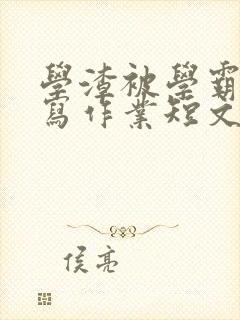 學渣被學霸
寫作業短文
侯亮